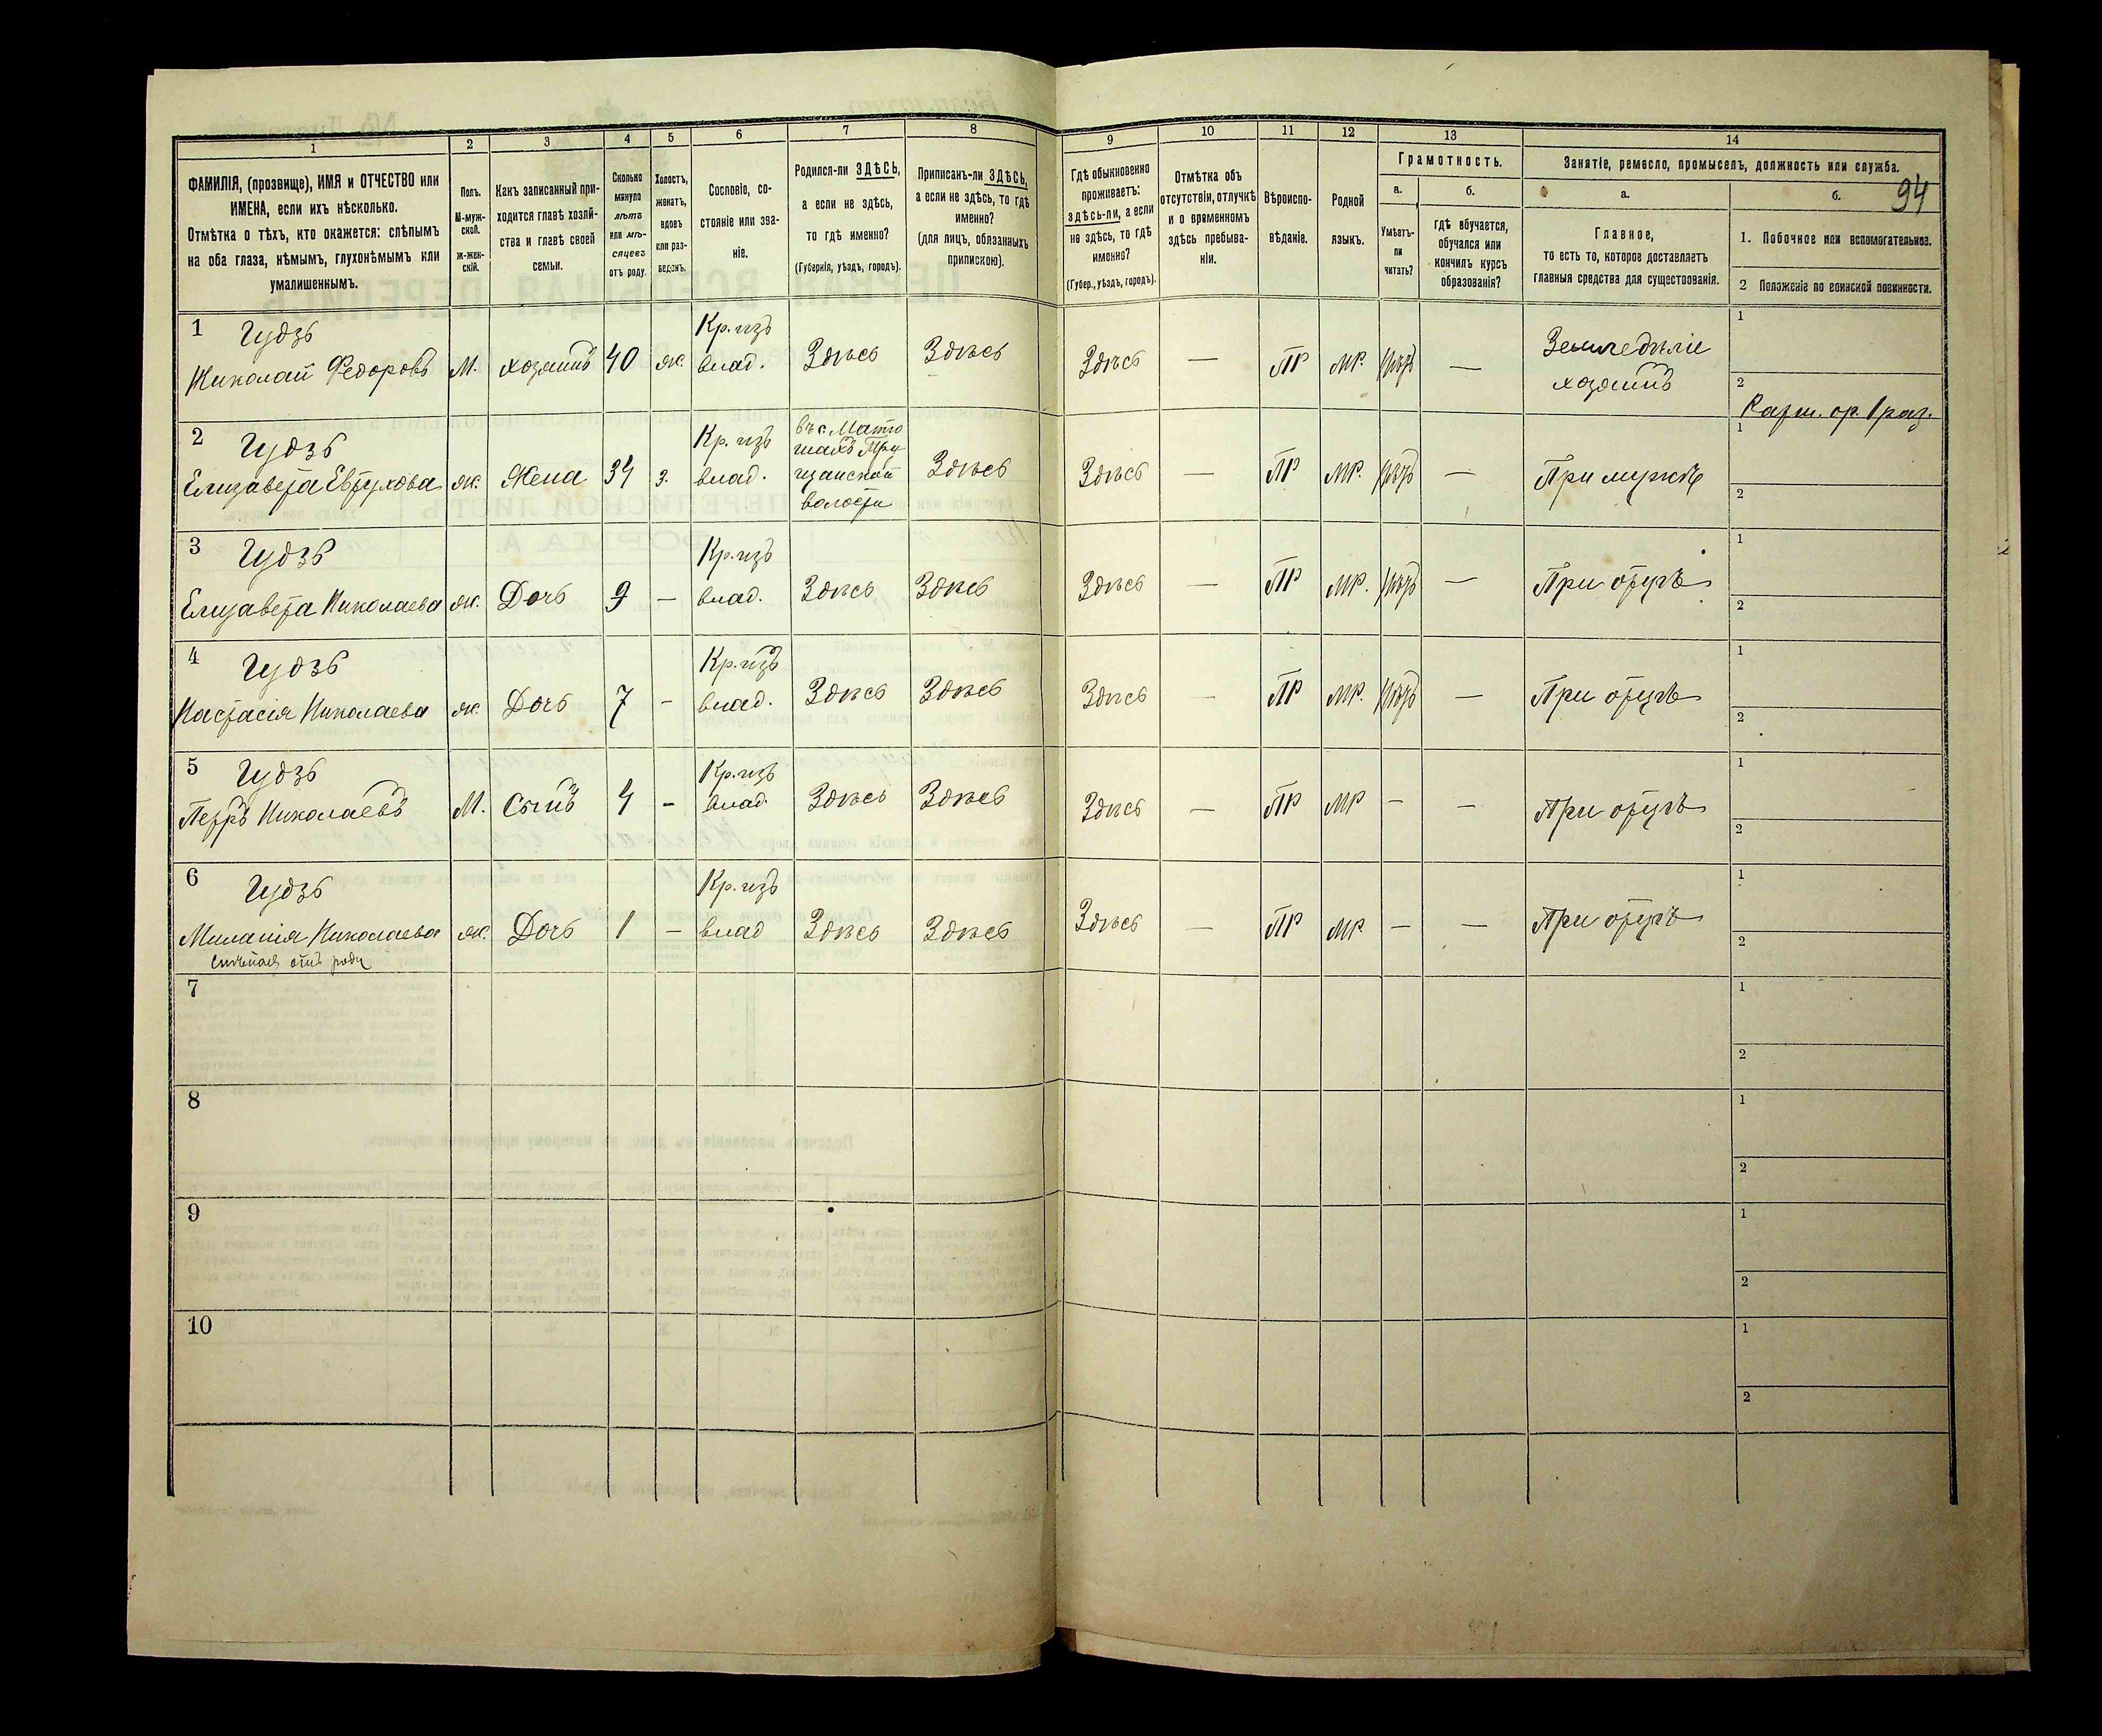 94
1 2 3 4 5 6 7 8 9 10 11 12 13 14
ФАМИЛІЯ, (прозвище), ИМЯ и ОТЧЕСТВО или
ИМЕНА, если ихъ нѣсколько.
Отмѣтка о тѣхъ, кто окажется: слѣпымъ
на оба глаза, нѣмымъ, глухонѣмымъ или
умалишеннымъ.
Полъ.
М-муж-
ской.
ж-жен-
скій.
Какъ записанный при-
ходится главѣ хозяй-
ства и главѣ своей
семьи.
Сколько
минуло
лѣтъ
или мѣ-
сяцевъ
отъ роду.
Холостъ,
женатъ,
вдовъ
или раз-
веденъ.
Сословіе, со-
стояніе или зва-
ніе.
Родился-ли ЗДѢСЬ,
а если не здѣсь,
то гдѣ именно?
(Губернія, уѣздъ, городъ).
Приписанъ-ли ЗДѢСЬ,
а если не здѣсь, то гдѣ
именно?
(для лицъ, обязанныхъ
припискою).
Гдѣ обыкновенно
проживаетъ:
здѣсь-ли, а если
не здѣсь, то гдѣ
именно?
(Губер., уѣздъ, городъ).
Отмѣтка объ
отсутствіи, отлучкѣ
и о временномъ
здѣсь пребыва-
ніи.
Вѣроиспо-
вѣданіе.
Родной
языкъ.
Грамотность.
а.
Умѣетъ-
ли
читать?
б.
гдѣ обучается,
обучался или
кончилъ курсъ
образованія?
Занятіе, ремесло, промыселъ, должность или служба.
а.
Главное,
то есть то, которое доставляетъ
главныя средства для существованія.
б.
1. Побочное или вспомогательное.
2 Положеніе по воинской повинности.
1 Гудзь Кр. изъ Земледѣліе 1
Николай Федоровъ М. хозяинъ 40 ж. влад. Здѣсь Здѣсь Здѣсь — ПР МР. нѣтъ — хозяинъ 2
1 раз.
2 Гудзь Кр. изъ въ с. 1
Елизавета Евтухова ж. Жена 34 з. влад. волости Здѣсь Здѣсь — ПР МР. нѣтъ — При мужѣ 2
3 Гудзь Кр. изъ 1
Елизавета Николаева ж. Дочь 9 — влад. Здѣсь Здѣсь Здѣсь — ПР МР. нѣтъ — При отцѣ 2
4 Гудзь Кр. изъ 1
Настасія Николаева ж. Дочь 7 - влад. Здѣсь Здѣсь Здѣсь — ПР МР. нѣтъ — При отцѣ 2
5 Гудзь Кр. изъ 1
Петръ Николаевъ М. Сынъ 4 - влад. Здѣсь Здѣсь Здѣсь — ПР МР - - При отцѣ 2
6 Гудзь Кр. изъ 1
Миланія Николаева ж. Дочь 1 — влад Здѣсь Здѣсь Здѣсь — ПР МР. — — При отцѣ 2
отъ роду
7 1
2
8 1
2
9 1
2
10 1
2